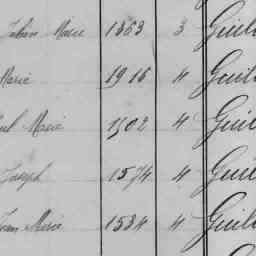 Julien Marie 1863 3 Guil
Marie 1916 4 Guil
Marie 1902 4 Guil
Joseph 1874 4 Guil
Jean Marie 1884 4 Guil